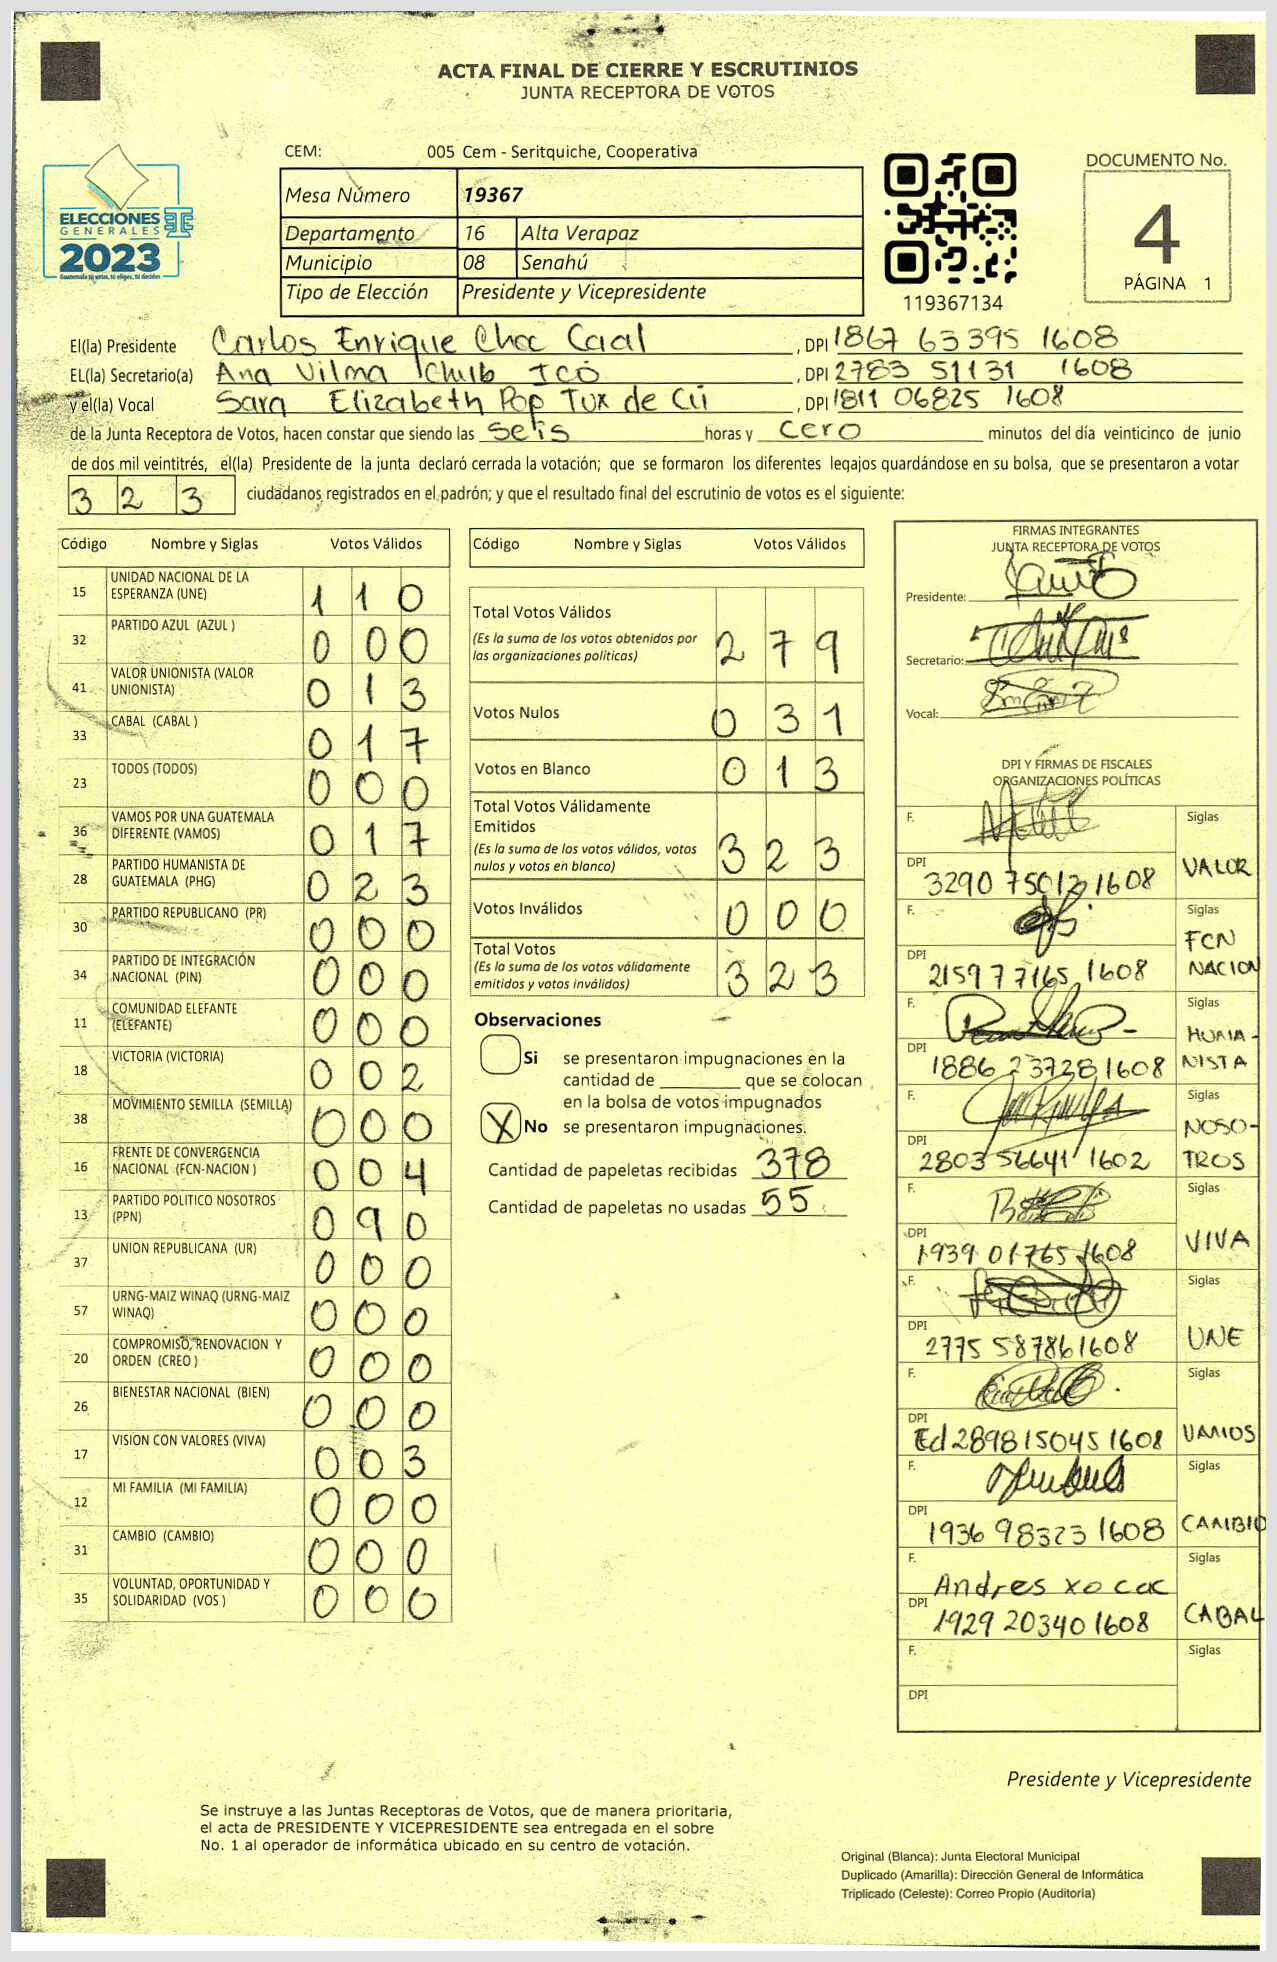 ACTA FINAL DE CIERRE Y ESCRUTINIOS
JUNTA RECEPTORA DE VOTOS
CEM: 005 Cem - Seritquiche, Cooperativa
ELECCIONES
GENERALES
2023
Guatemala tú votas, tú eliges, tú decides
Mesa Número 19367
Departamento 16 Alta Verapaz
Municipio 08 Senahú
Tipo de Elección Presidente y Vicepresidente
119367134
DOCUMENTO No.
4
PÁGINA 1
El(la) Presidente Carlos Enrique Choc Caal , DPI 1867 63395 1608
EL(la) Secretario(a) Ana Vilma Chub ICO , DPI 2783 51131 1608
y el(la) Vocal Sara Elizabeth Pop Tux de Cú , DPI 1811 06825 1608
de la Junta Receptora de Votos, hacen constar que siendo las seis horas y cero minutos del día veinticinco de junio
de dos mil veintitrés, el(la) Presidente de la junta declaró cerrada la votación; que se formaron los diferentes legajos quardándose en su bolsa, que se presentaron a votar
3 2 3 ciudadanos registrados en el padrón; y que el resultado final del escrutinio de votos es el siguiente:
Código Nombre y Siglas Votos Válidos
15 UNIDAD NACIONAL DE LA ESPERANZA (UNE) 1 1 0
32 PARTIDO AZUL (AZUL ) 0 0 0
41 VALOR UNIONISTA (VALOR UNIONISTA) 0 1 3
33 CABAL (CABAL ) 0 1 7
23 TODOS (TODOS) 0 0 0
36 VAMOS POR UNA GUATEMALA DIFERENTE (VAMOS) 0 1 7
28 PARTIDO HUMANISTA DE GUATEMALA (PHG) 0 2 3
30 PARTIDO REPUBLICANO (PR) 0 0 0
34 PARTIDO DE INTEGRACIÓN NACIONAL (PIN) 0 0 0
11 COMUNIDAD ELEFANTE (ELEFANTE) 0 0 0
18 VICTORIA (VICTORIA) 0 0 2
38 MOVIMIENTO SEMILLA (SEMILLA) 0 0 0
16 FRENTE DE CONVERGENCIA NACIONAL (FCN-NACION ) 0 0 4
13 PARTIDO POLITICO NOSOTROS (PPN) 0 9 0
37 UNION REPUBLICANA (UR) 0 0 0
57 URNG-MAIZ WINAQ (URNG-MAIZ WINAQ) 0 0 0
20 COMPROMISO, RENOVACION Y ORDEN (CREO ) 0 0 0
26 BIENESTAR NACIONAL (BIEN) 0 0 0
17 VISION CON VALORES (VIVA) 0 0 3
12 MI FAMILIA (MI FAMILIA) 0 0 0
31 CAMBIO (CAMBIO) 0 0 0
35 VOLUNTAD, OPORTUNIDAD Y SOLIDARIDAD (VOS ) 0 0 0
Código Nombre y Siglas Votos Válidos
Total Votos Válidos 2 7 9
(Es la suma de los votos obtenidos por
las organizaciones politicas)
Votos Nulos 0 3 1
Votos en Blanco 0 1 3
Total Votos Válidamente
Emitidos 3 2 3
(Es la suma de los votos válidos, votos
nulos y votos en blanco)
Votos Inválidos 0 0 0
Total Votos 3 2 3
(Es la suma de los votos válidamente
emitidos y votos inválidos)
Observaciones
Si se presentaron impugnaciones en la
cantidad de ________ que se colocan
en la bolsa de votos impugnados
X No se presentaron impugnaciones.
Cantidad de papeletas recibidas 378
Cantidad de papeletas no usadas 55
FIRMAS INTEGRANTES
JUNTA RECEPTORA DE VOTOS
Presidente:
Secretario:
Vocal:
DPI Y FIRMAS DE FISCALES
ORGANIZACIONES POLÍTICAS
F. Siglas
DPI 3290 75012 1608 VALOR
F. Siglas
DPI 2159 77165 1608 FCN NACION
F. Siglas
DPI 1886 23728 1608 HUMA-NISTA
F. Siglas
DPI 2803 56641 1602 NOSO-TROS
F. Siglas
DPI 1939 01765 1608 VIVA
F. Siglas
DPI 2775 58786 1608 UNE
F. Siglas
DPI Ed 2898 15045 1608 VAMOS
F. Siglas
DPI 1936 98323 1608 CAMBIO
F. Andres xo cac Siglas
DPI 1929 20340 1608 CABAL
F. Siglas
DPI
Presidente y Vicepresidente
Se instruye a las Juntas Receptoras de Votos, que de manera prioritaria,
el acta de PRESIDENTE Y VICEPRESIDENTE sea entregada en el sobre
No. 1 al operador de informática ubicado en su centro de votación.
Original (Blanca): Junta Electoral Municipal
Duplicado (Amarilla): Dirección General de Informática
Triplicado (Celeste): Correo Propio (Auditoría)